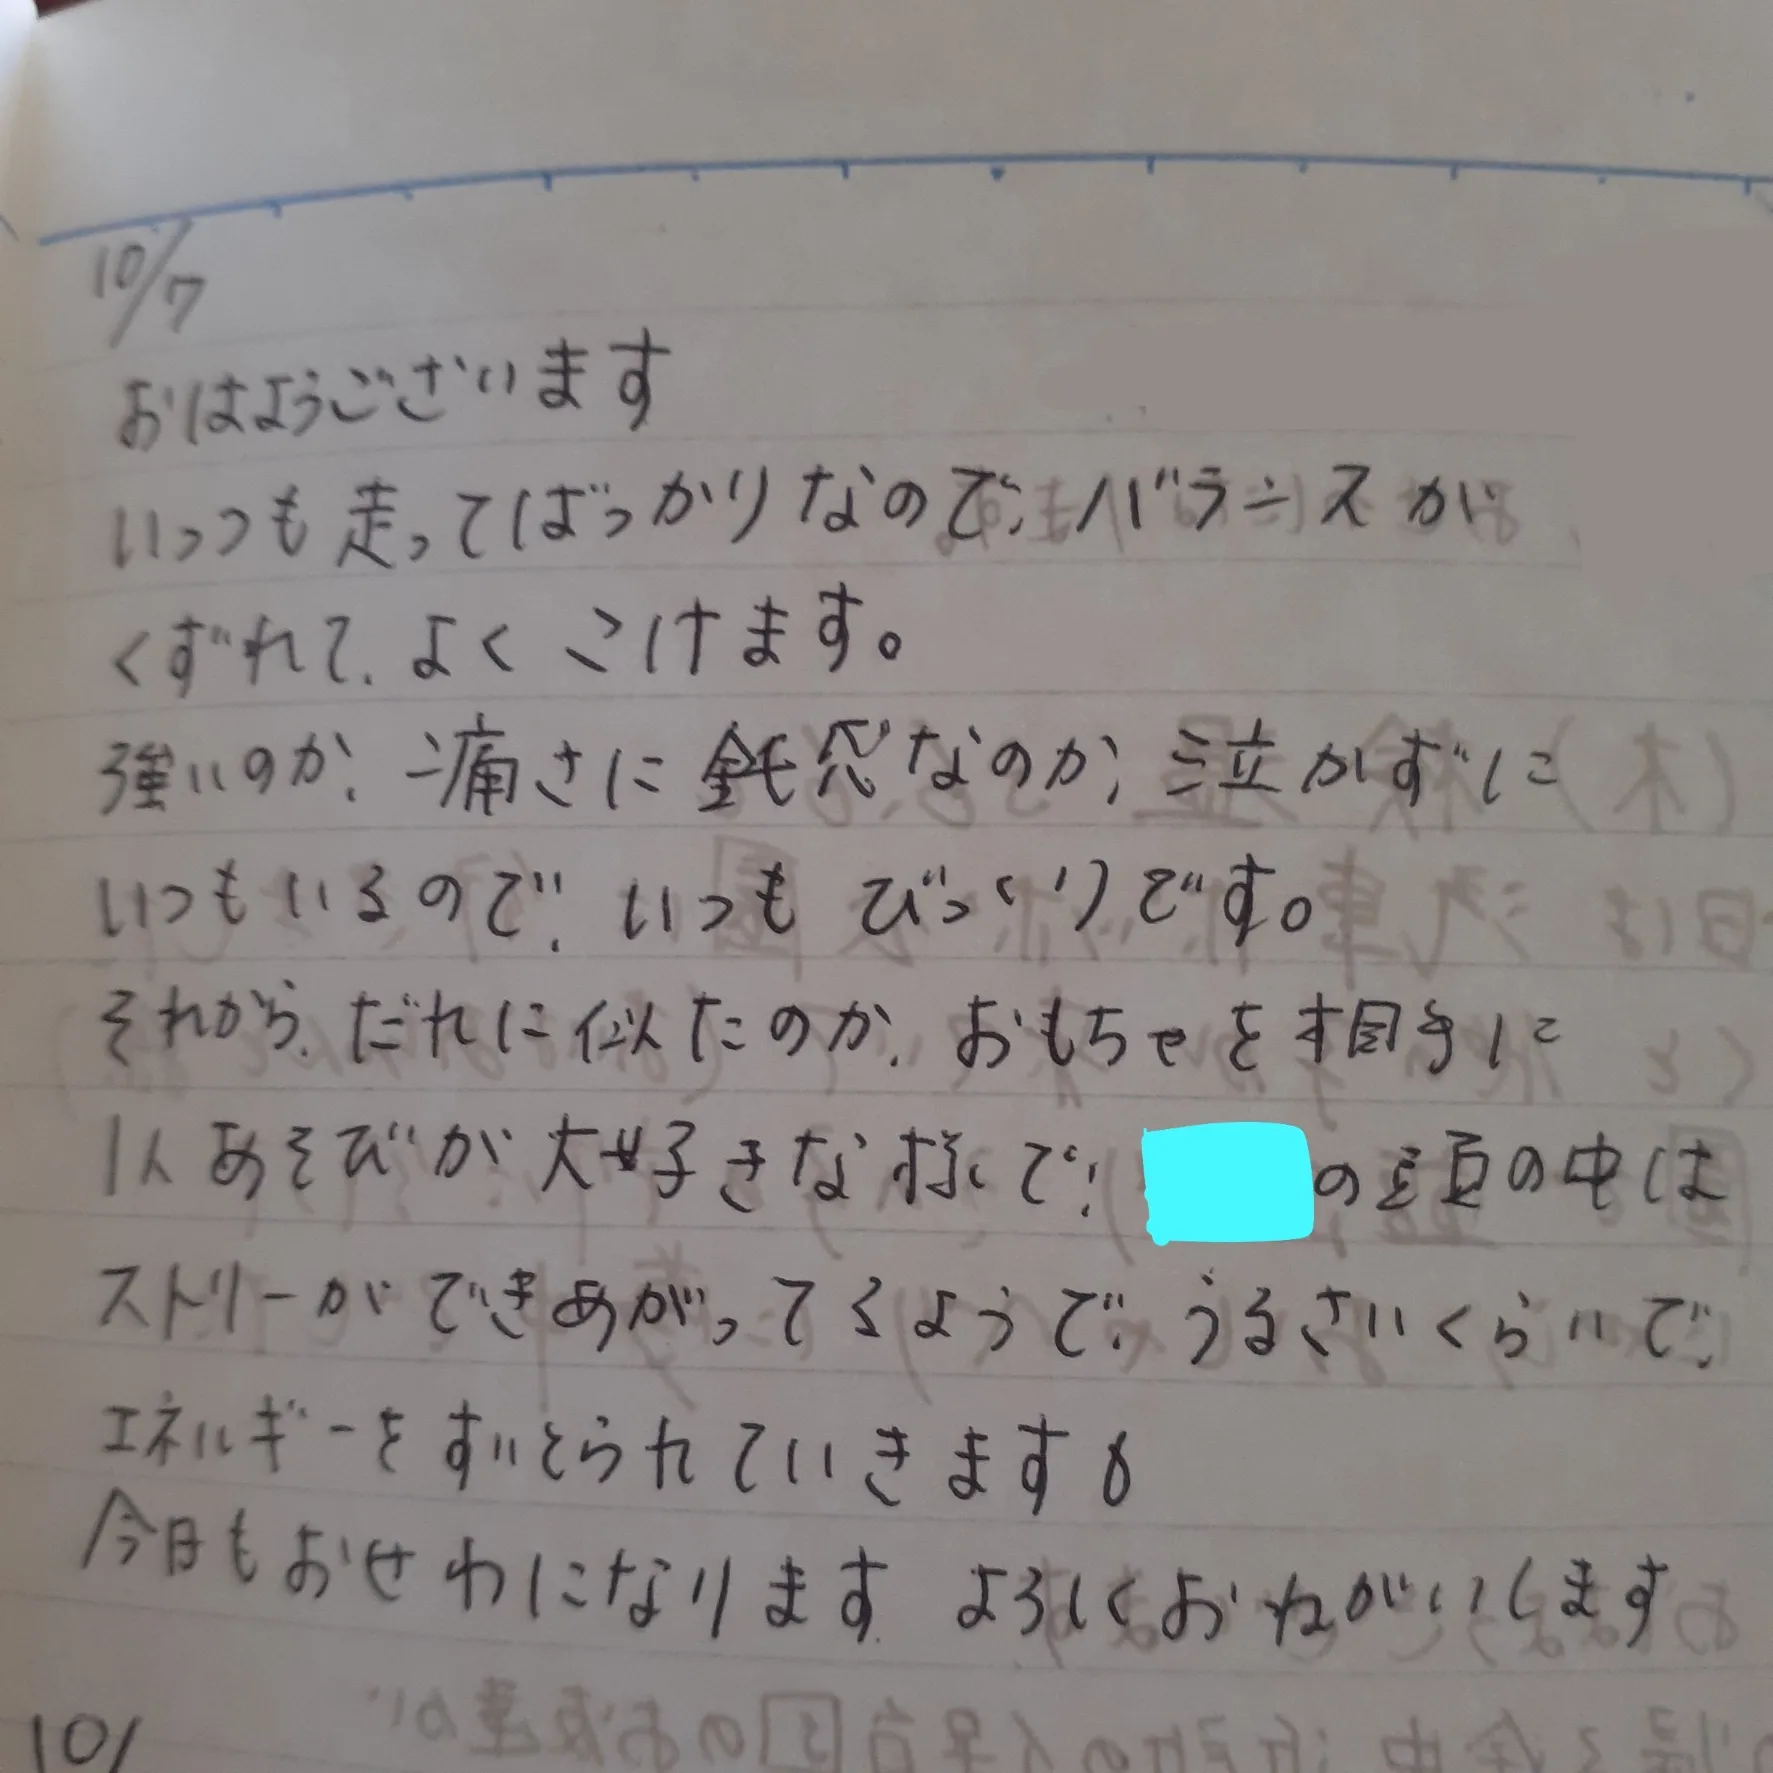 10/7
おはようございます
いっつも走ってばっかりなので、バランスが
くずれて、よくこけます。
強いのか、痛さに鈍感なのか、泣かずに
いつもいるので、いつもびっくりです。
それから、だれに似たのか、おもちゃを相手に
1人あそびが大好きな様で、の頭の中は
ストーリーができあがってるようで、うるさいくらいで、
エネルギーをすいとられていきます
今日もおせわになります よろしくおねがいします
10/